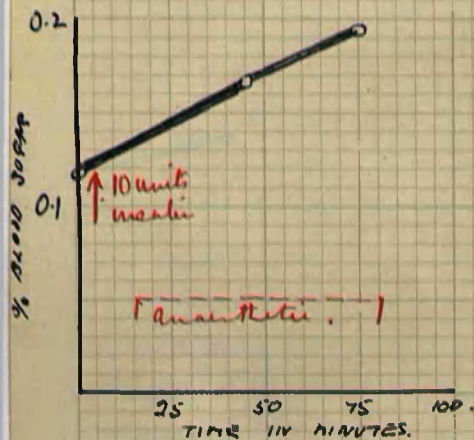 0.2
% BLOOD SUGAR
10 units
insulin
0.1
anaesthetic.
25 50 75 100.
TIME IN MINUTES.